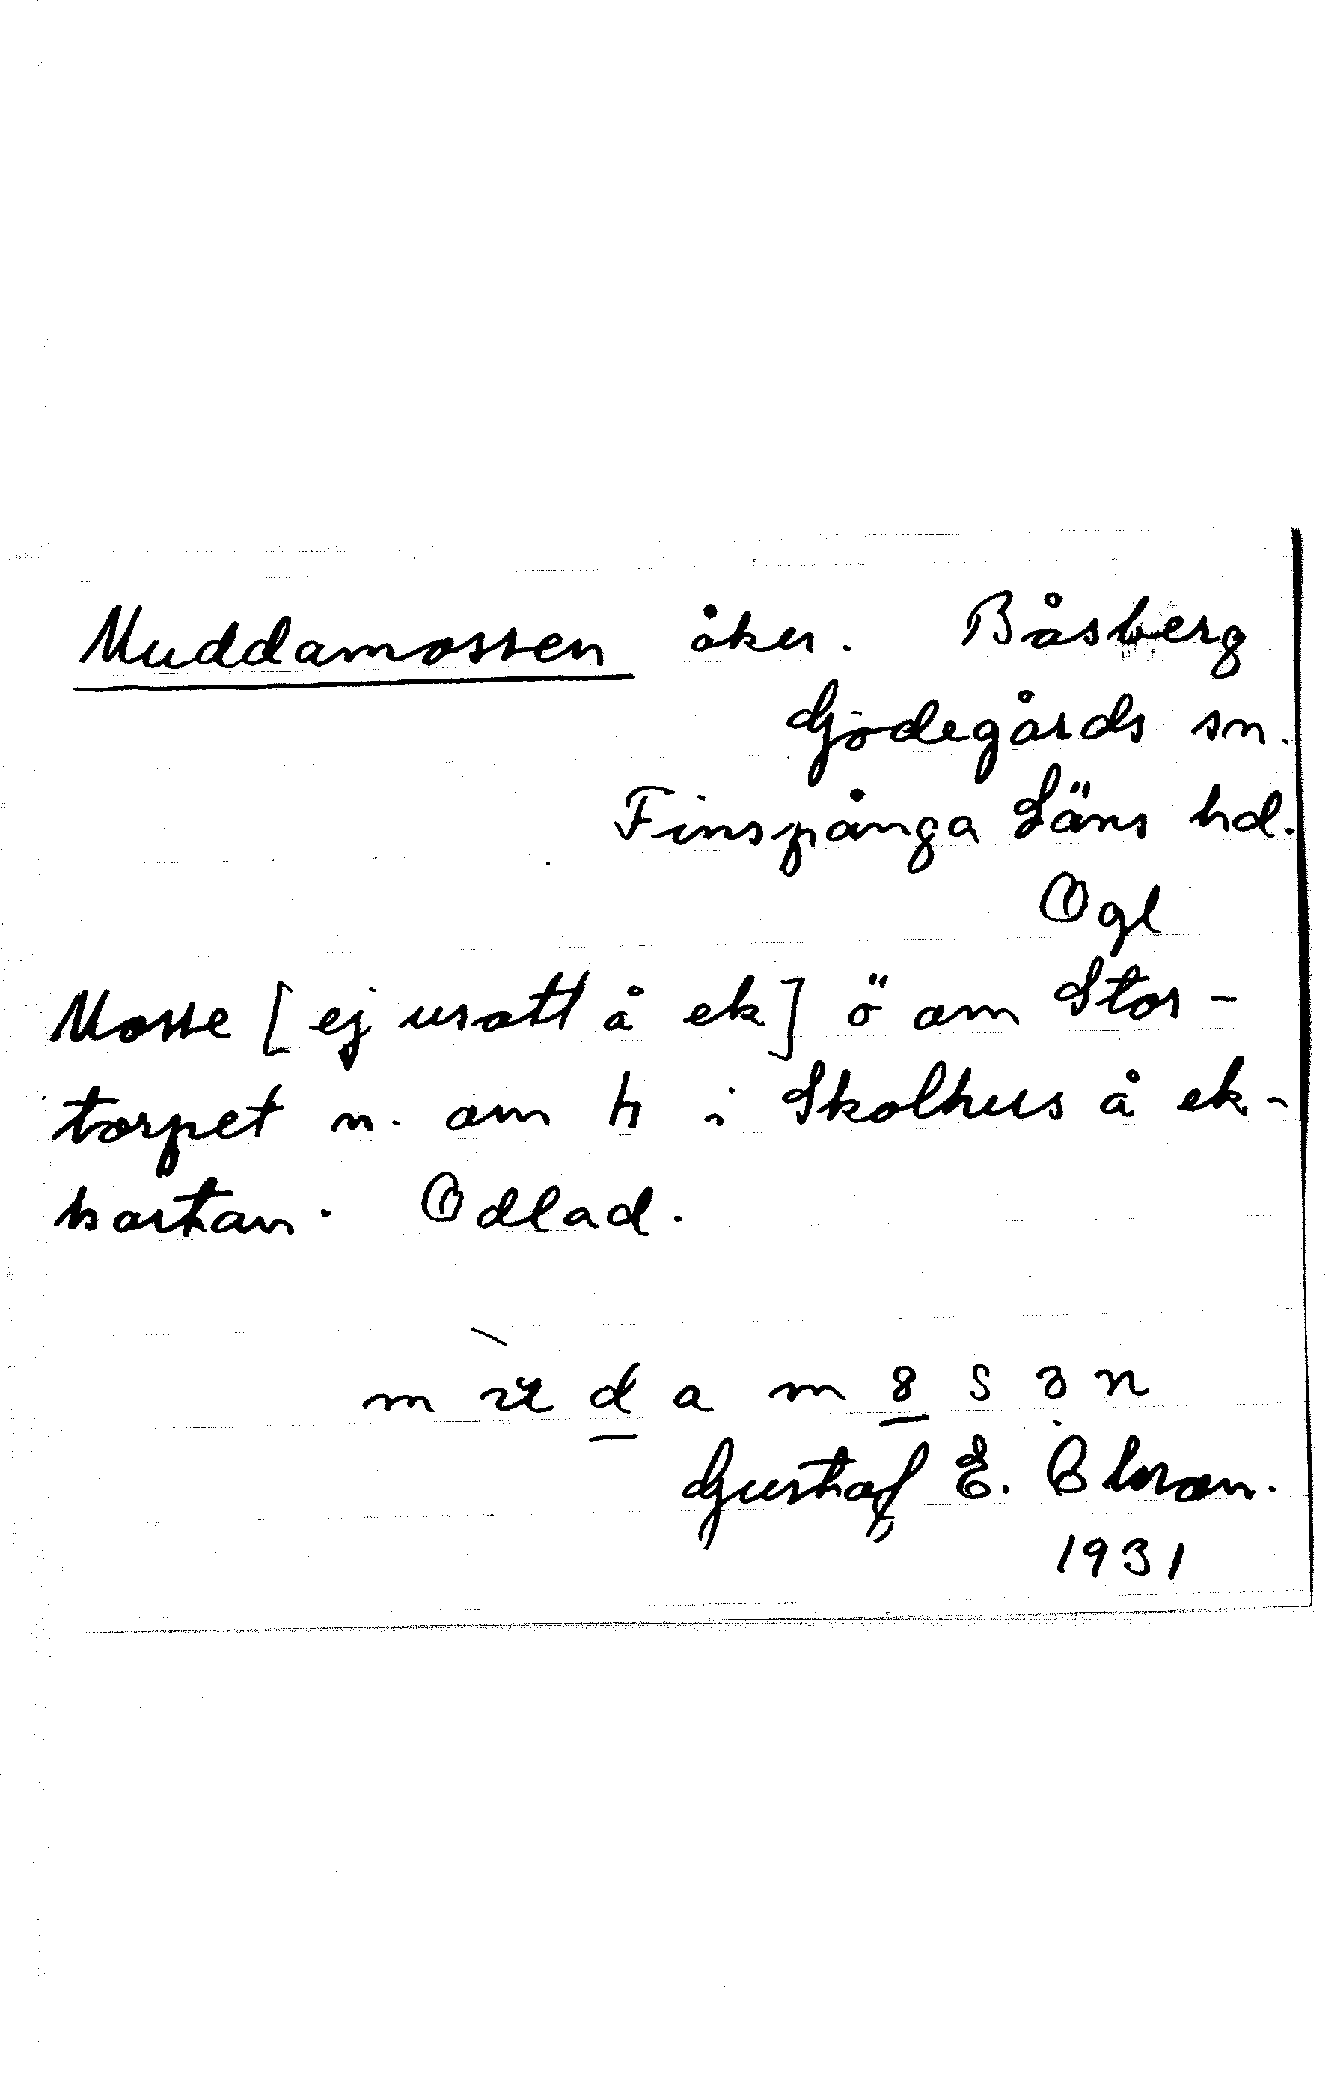 Muddamossen åker. Båsberg
Godegårds sn.
Finspånga Läns hd.
Ögl
Mosse [ej utsatt å ek] ö om Stor-
torpet n. om h i Skolhus å ek-
kartan. Odlad.
Gustaf E.
1931